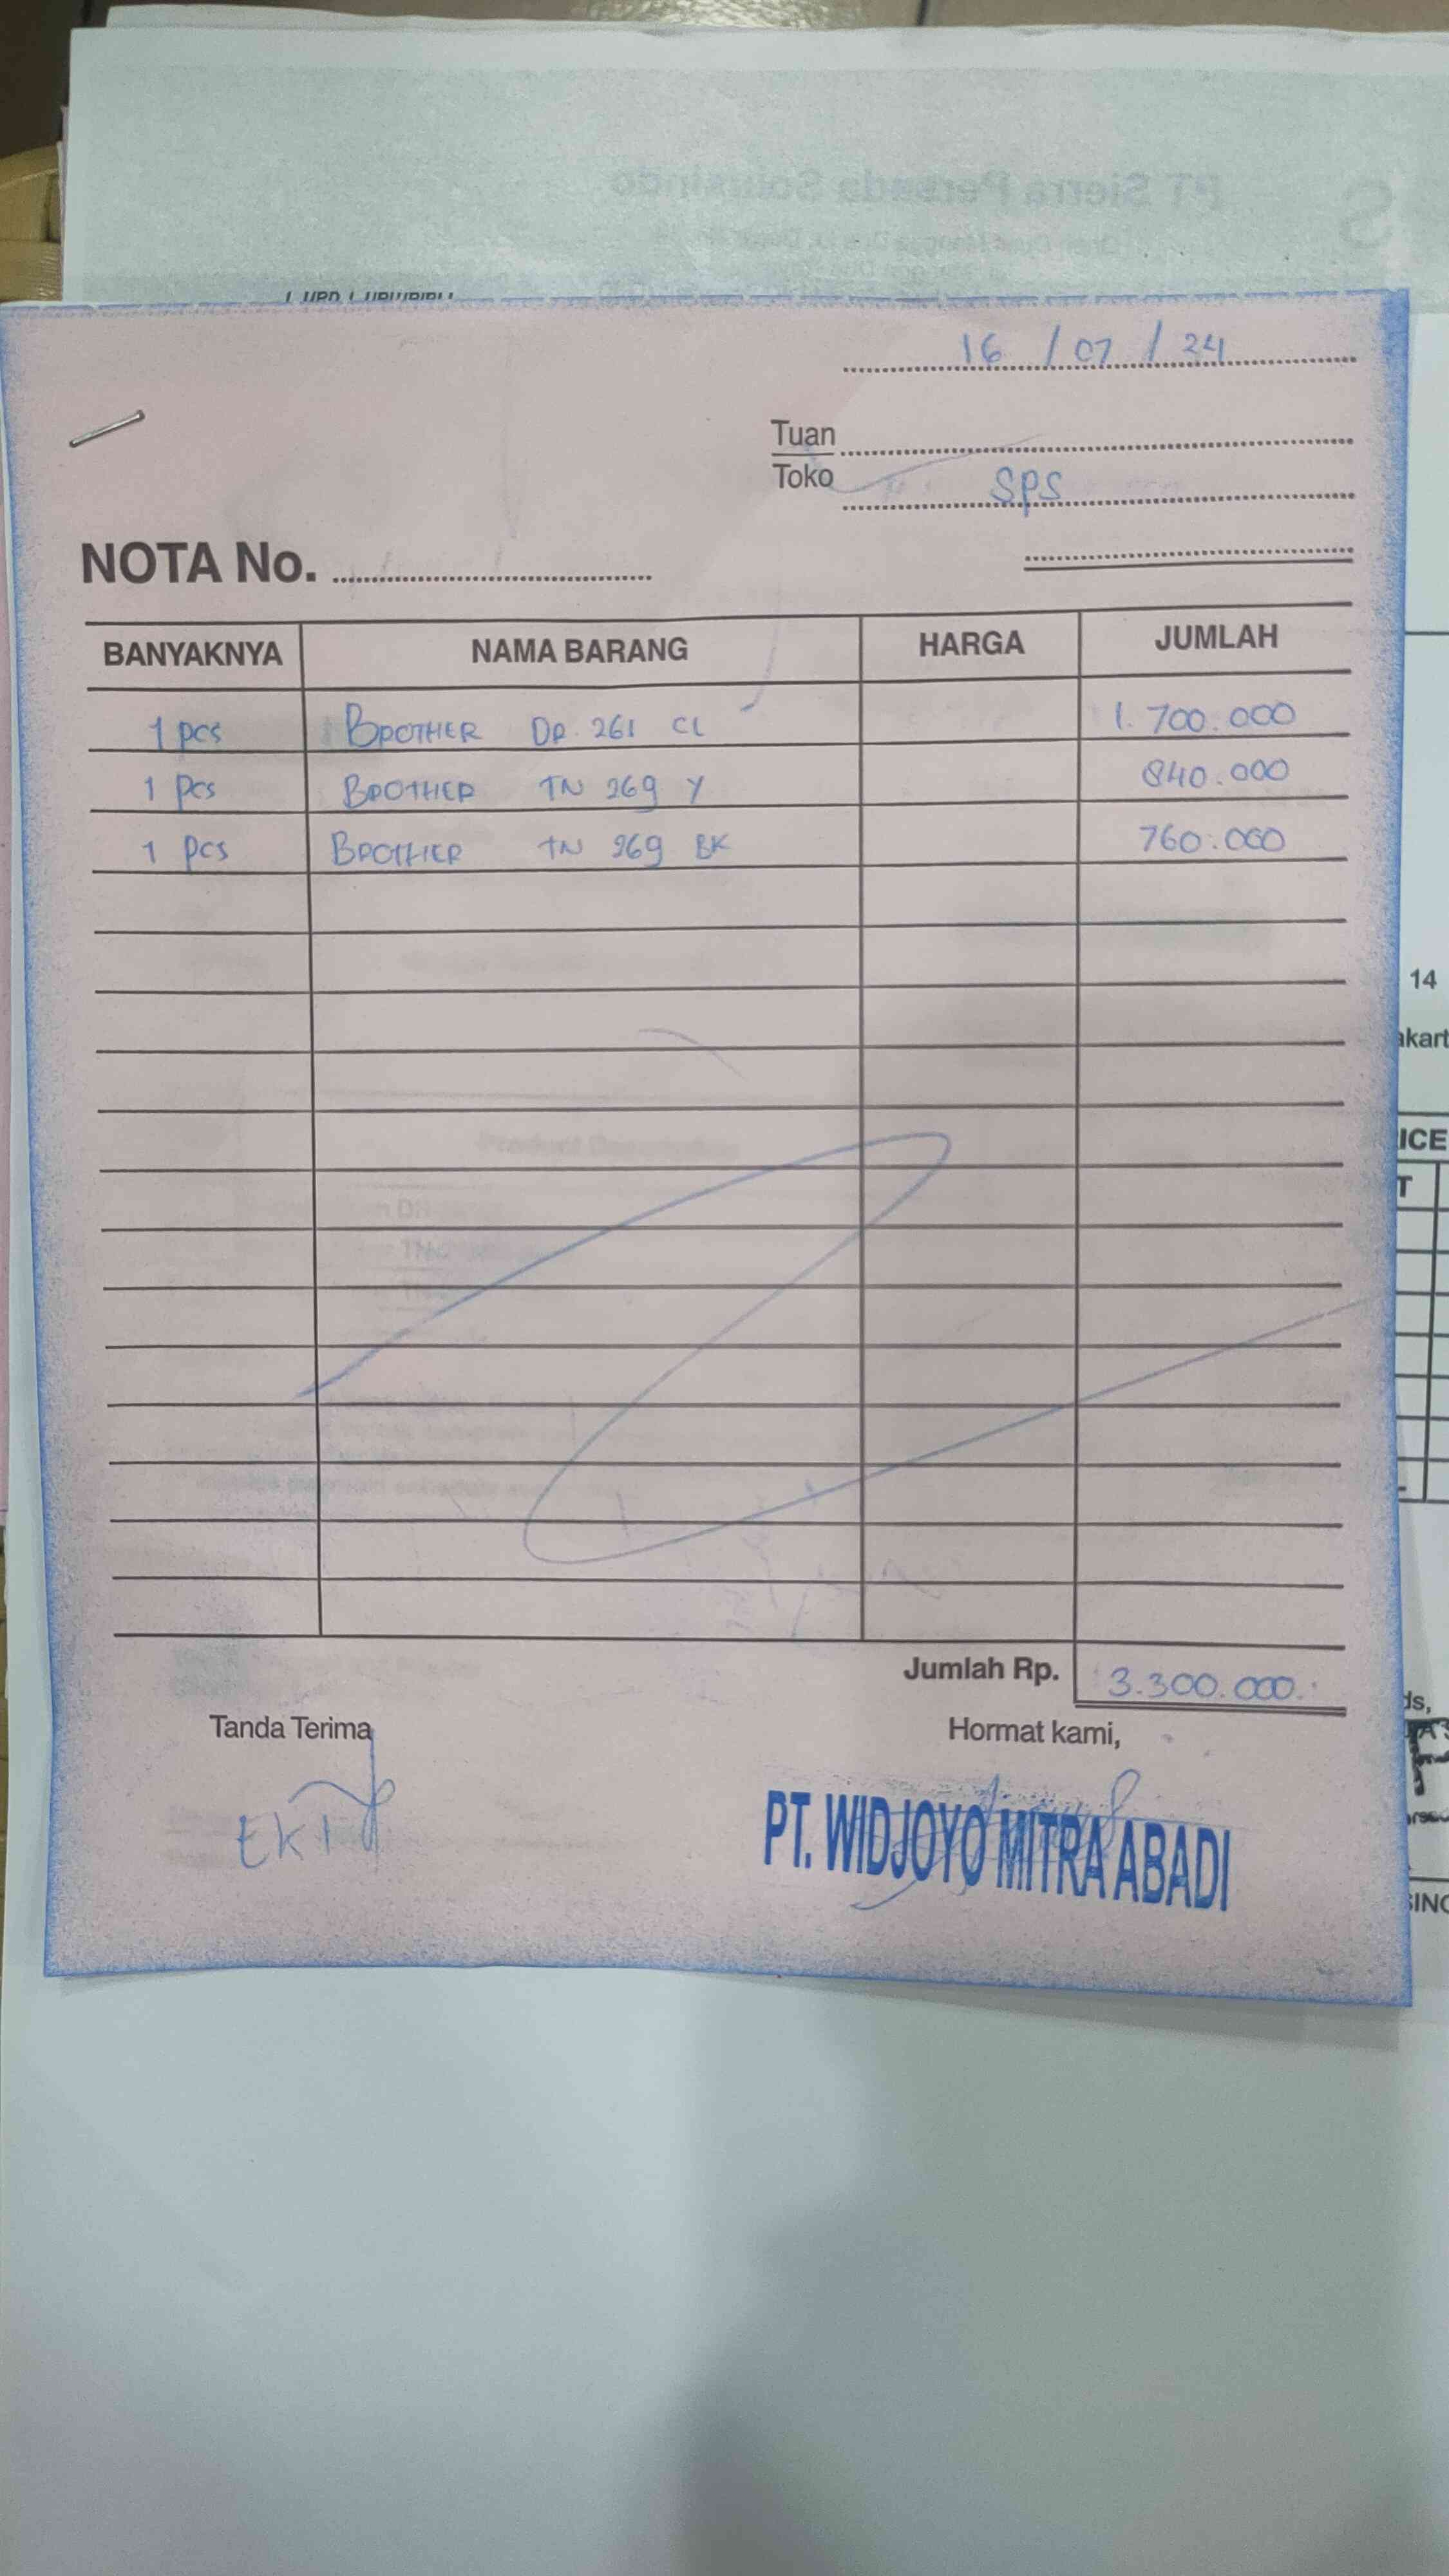 PT Sierra Persada Solusindo
16 / 07 / 24
Tuan
Toko
SPS
NOTA No.
BANYAKNYA NAMA BARANG HARGA JUMLAH
1 pcs BROTHER DR 261 CL 1.700.000
1 Pcs BROTHER TN 269 Y 840.000
1 Pcs BROTHER TN 269 BK 760.000
Jumlah Rp. 3.300.000
Tanda Terima Hormat kami,
EKI
PT. WIDJOYO MITRA ABADI
14
akart
ICE
T
ds,